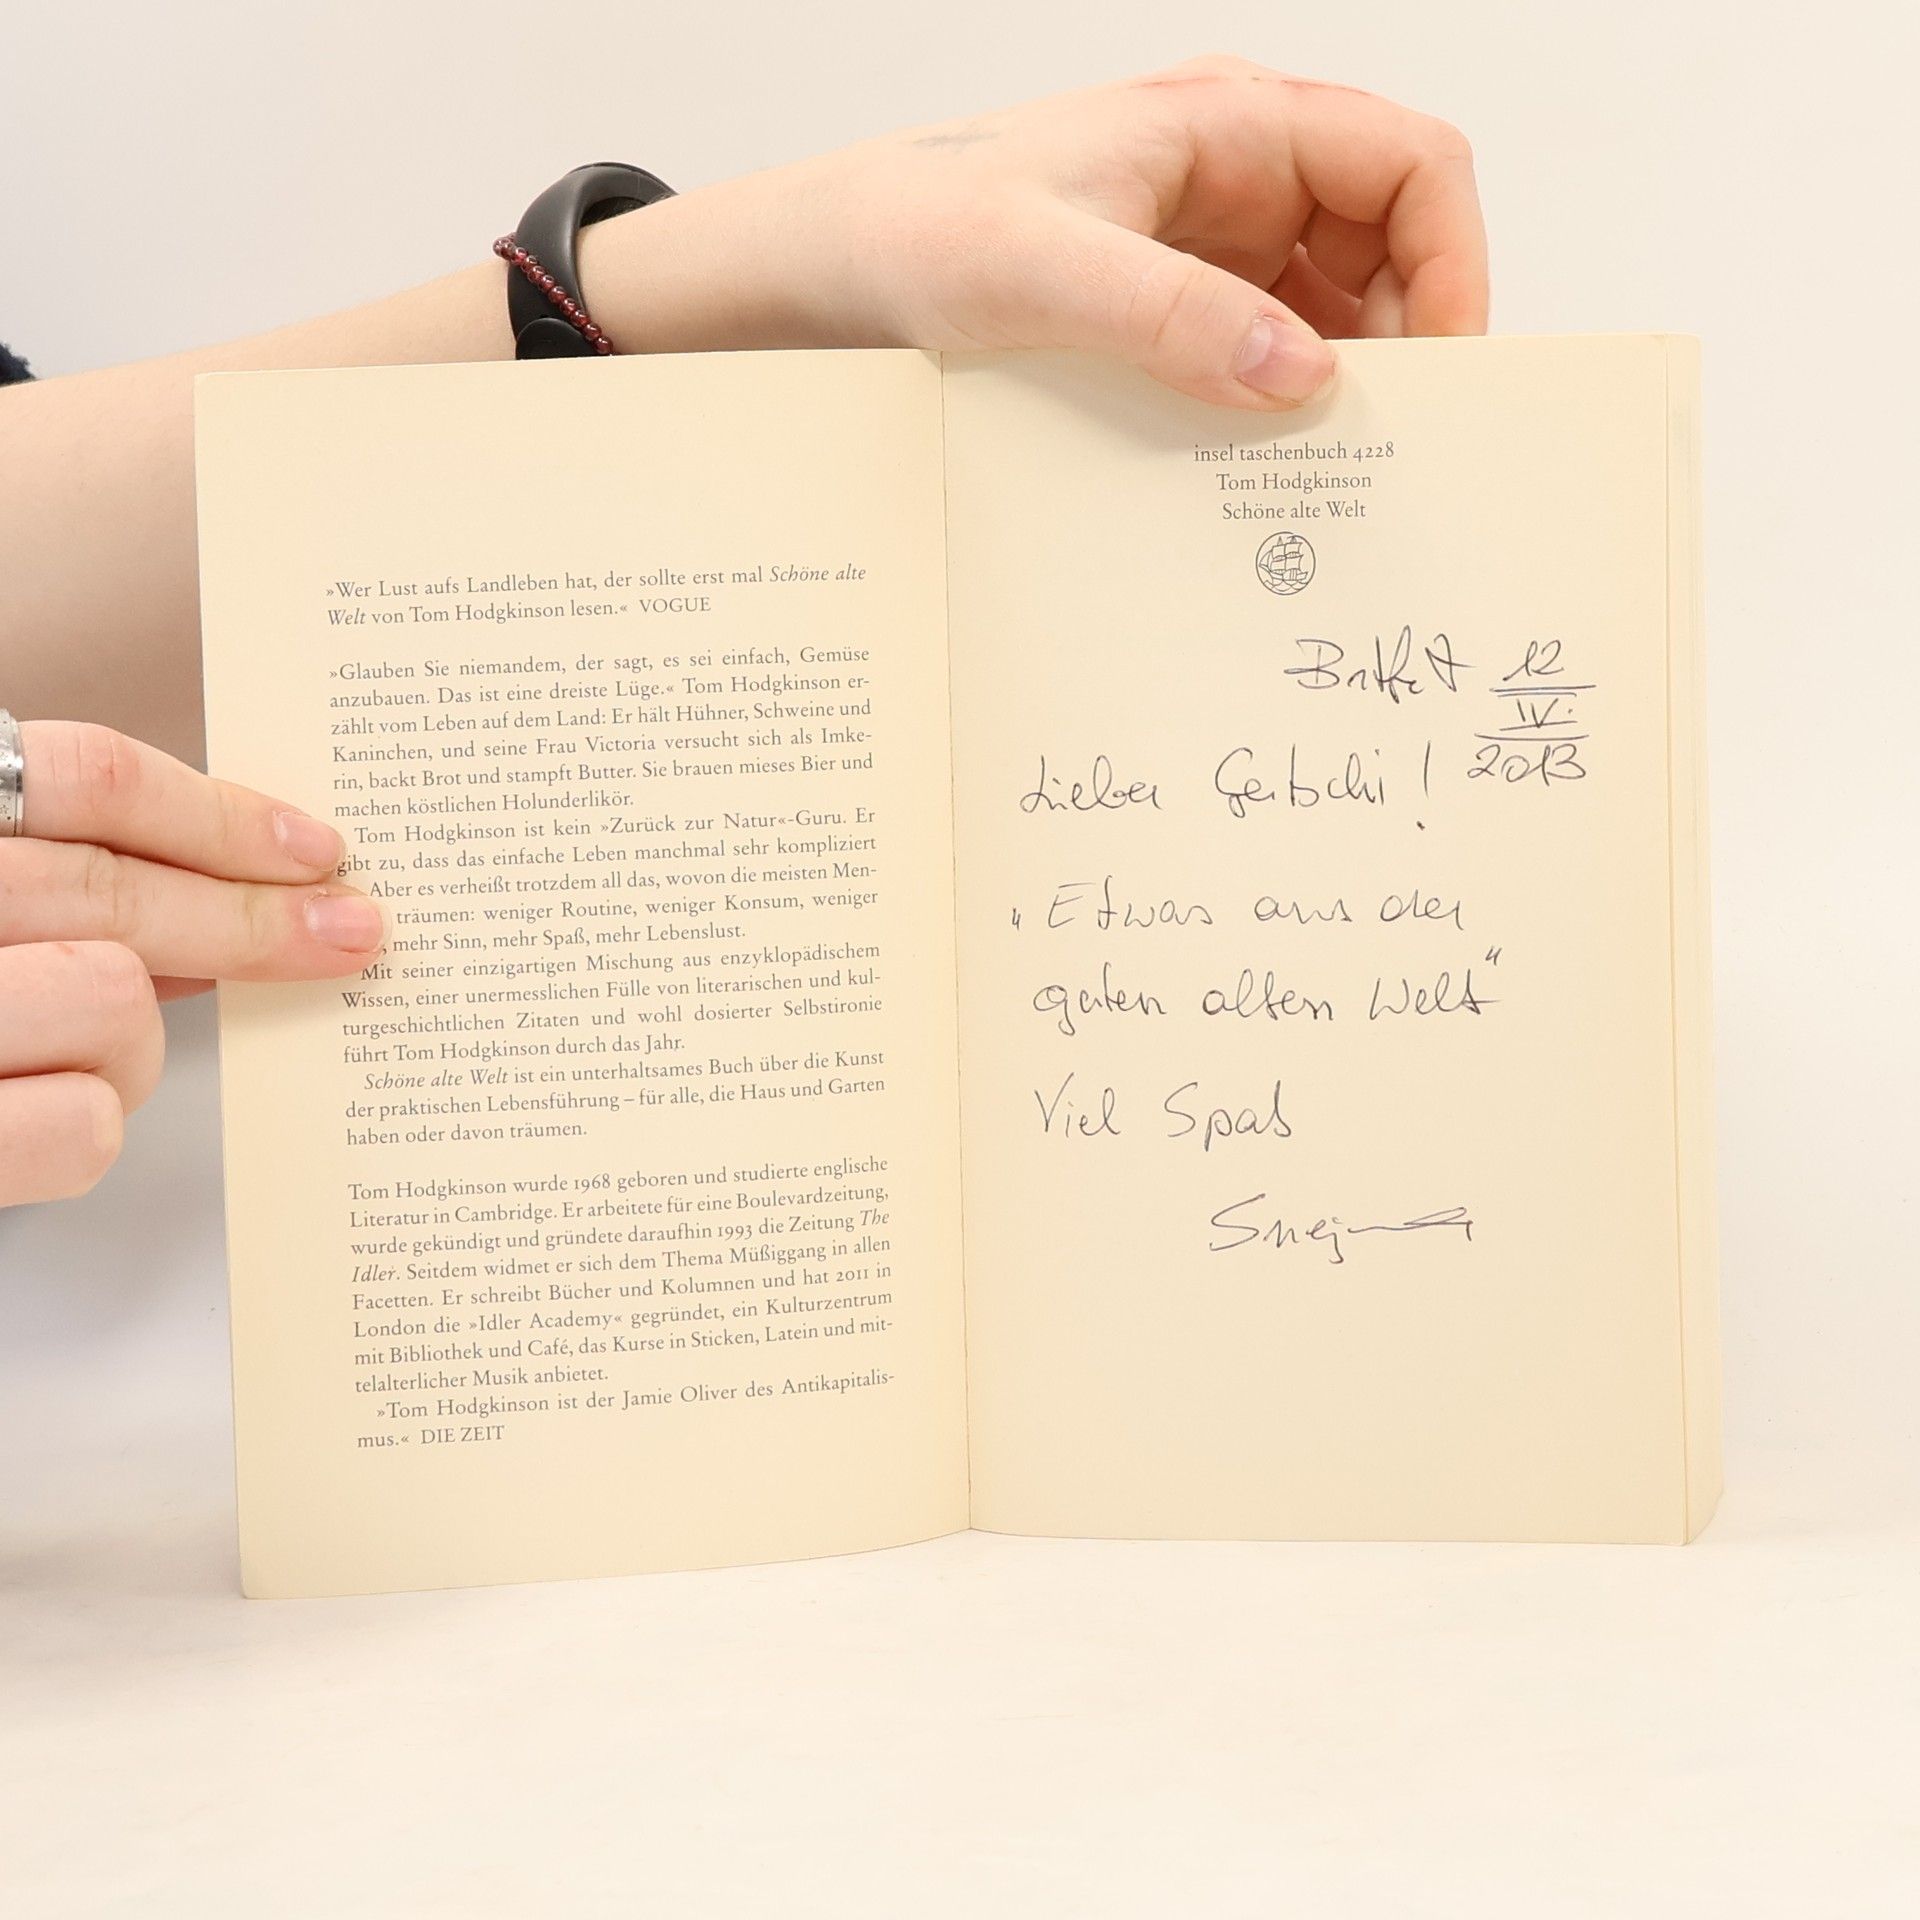 »Wer Lust aufs Landleben hat, der sollte erst mal Schöne alte
Welt von Tom Hodgkinson lesen.« VOGUE
»Glauben Sie niemandem, der sagt, es sei einfach, Gemüse
anzubauen. Das ist eine dreiste Lüge.« Tom Hodgkinson er-
zählt vom Leben auf dem Land: Er hält Hühner, Schweine und
Kaninchen, und seine Frau Victoria versucht sich als Imke-
rin, backt Brot und stampft Butter. Sie brauen mieses Bier und
machen köstlichen Holunderlikör.
Tom Hodgkinson ist kein »Zurück zur Natur«-Guru. Er
gibt zu, dass das einfache Leben manchmal sehr kompliziert
Aber es verheißt trotzdem all das, wovon die meisten Men-
träumen: weniger Routine, weniger Konsum, weniger
, mehr Sinn, mehr Spaß, mehr Lebenslust.
Mit seiner einzigartigen Mischung aus enzyklopädischem
Wissen, einer unermesslichen Fülle von literarischen und kul-
turgeschichtlichen Zitaten und wohl dosierter Selbstironie
führt Tom Hodgkinson durch das Jahr.
Schöne alte Welt ist ein unterhaltsames Buch über die Kunst
der praktischen Lebensführung – für alle, die Haus und Garten
haben oder davon träumen.
Tom Hodgkinson wurde 1968 geboren und studierte englische
Literatur in Cambridge. Er arbeitete für eine Boulevardzeitung,
wurde gekündigt und gründete daraufhin 1993 die Zeitung The
Idler. Seitdem widmet er sich dem Thema Müßiggang in allen
Facetten. Er schreibt Bücher und Kolumnen und hat 2011 in
London die »Idler Academy« gegründet, ein Kulturzentrum
mit Bibliothek und Café, das Kurse in Sticken, Latein und mit-
telalterlicher Musik anbietet.
»Tom Hodgkinson ist der Jamie Oliver des Antikapitalis-
mus.« DIE ZEIT
insel taschenbuch 4228
Tom Hodgkinson
Schöne alte Welt
12
IV.
2013
Lieber !
„Etwas aus der
guten alten Welt"
Viel Spaß